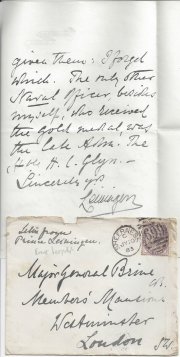 given them: I forget
which. The only other
Naval Officer besides
myself, who received
the gold medal was
the late Adm. The
H. C. Glyn. -
Sincerely yrs
Leiningen
Letter from
Prince Leiningen.
Major General Brine
Members' Mansions
Westminster
London
S.W.